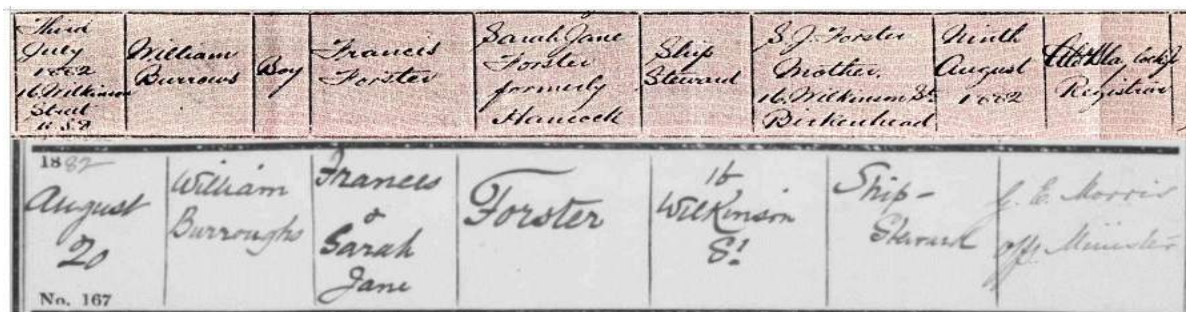 Third
July
1882
16 Wilkinson
Street
William
Burrows
Boy
Francis
Forster
Sarah Jane
Forster
formerly
Hancock
Ship
Steward
S. J. Forster
Mother.
16 Wilkinson St.
Birkenhead
Ninth
August
1882
Registrar
1882
August
20
No. 167
William
Burroughs
Frances
&
Sarah
Jane
Forster
16
Wilkinson
St
Ship-
Steward
J. E. Morris
Offg Minister